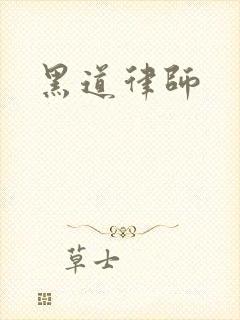 黑道律師
草士